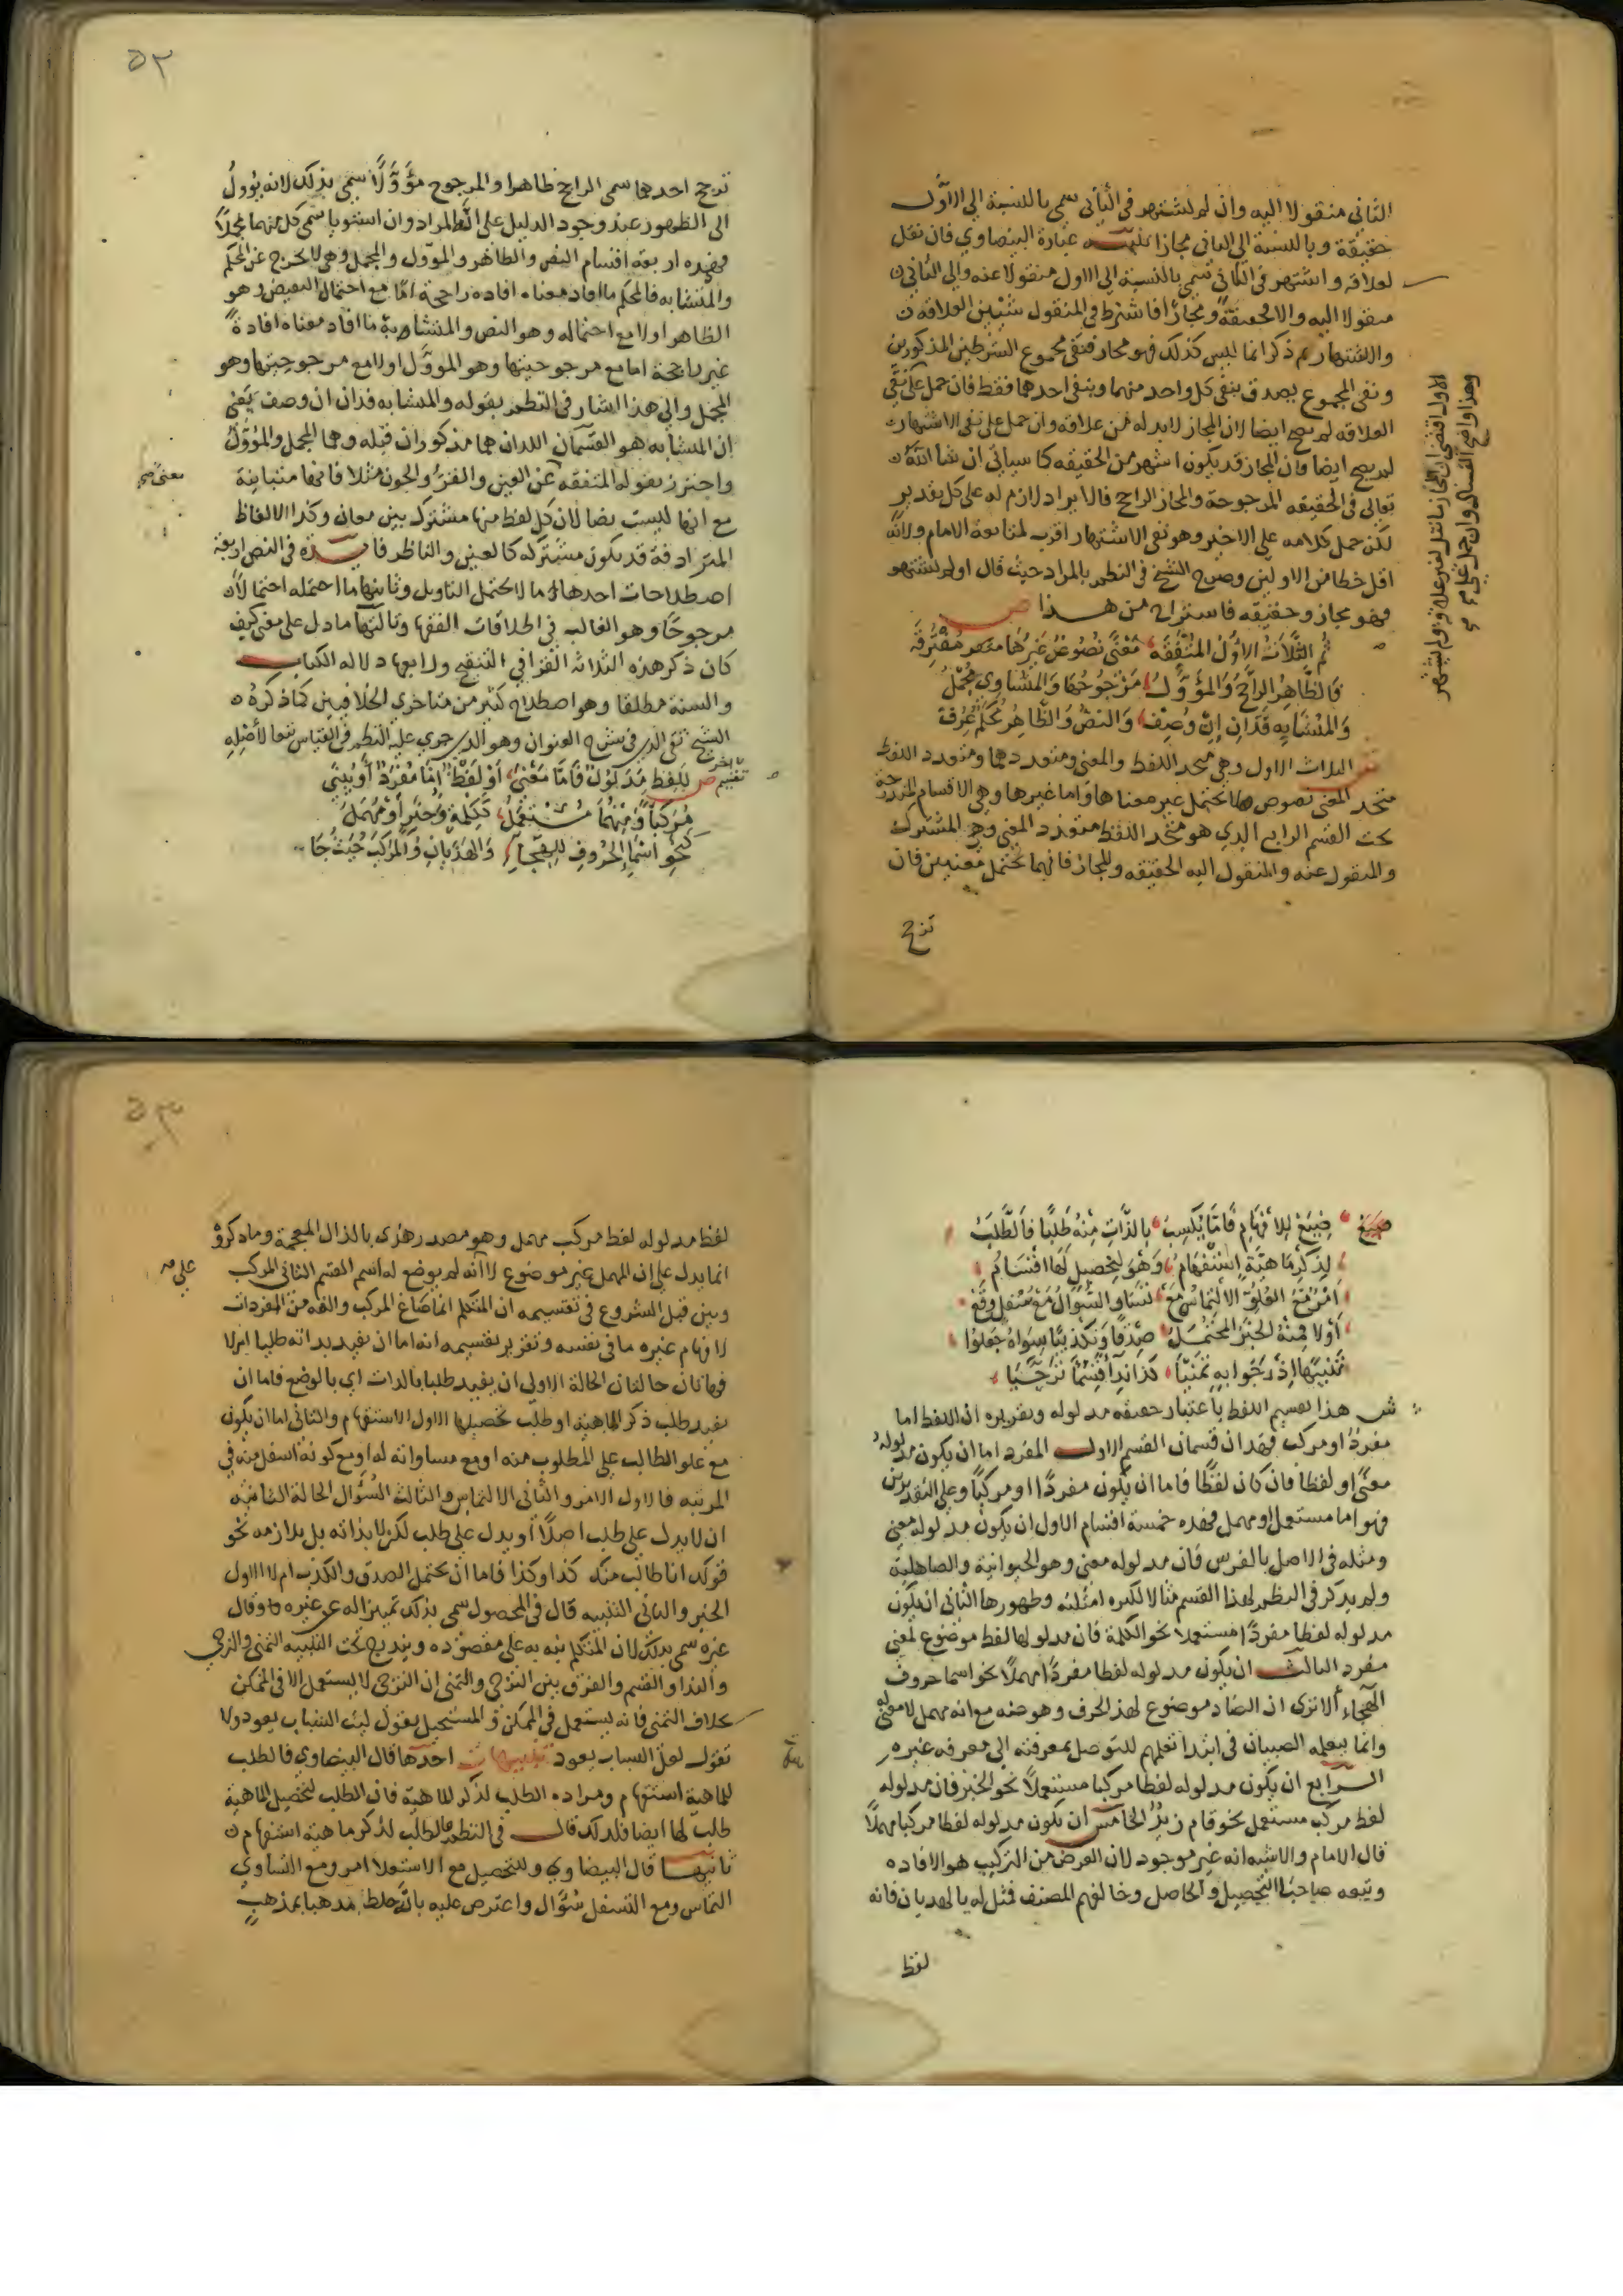 الثاني منقولا اليه وان لم يشتهر في الثاني سمي بالنسبة الي الاول
حقيقة وبالنسبة الي الثاني مجازا تنبيه عبارة البيضاوي فان نقل
لعلاقة واشتهر في الثاني سمي بالنسبة الي الاول منقولا عنه والي الثاني
منقولا اليه والا فحقيقة ومجازا فاشترط في المنقول شيئين العلاقة
والاشتهار ثم ذكر انما ليس كذلك فهو مجاز فنفي مجموع الشرطين المذكورين
ونفي المجموع يصدق بنفي كل واحد منهما وبنفي احدهما فقط فان حمل علي نفي
العلاقه لم يصح ايضا لان المجاز لابد له من علاقه وان حمل علي نفي الاشتهار
لم يصح ايضا فان المجاز قد يكون اشهر من الحقيقه كما سياتي ان شا الله
تعالي في الحقيقه المرجوحة والمجاز الراجح فالايراد لازم له علي كل تقدير
لكن حمل كلامه علي الاخير وهو نفي الاشتهار اقرب لمتابعة الامام ولانه
اقل خطا من الاولين وصرح الشيخ في النظم بالمراد حيث قال اولم يشتهر
فهو مجاز وحقيقه فاستراح من هذا ص
ثم الثلاث الاول المتفقه معني نصوص غيرها مفترقه
فالظاهر الراجح والمؤول مرجوحها والمساوي مجمل
والمتشابه قذان ان وصف والنص والظاهر محكم عرف
الثلاث الاول وهي متحد اللفظ والمعني ومتعددهما ومتعدد اللفظ
متحد المعني نصوص لا يحتمل غير معناها واما غيرها وهي الاقسام المندرجة
تحت القسم الرابع الذي هو متحد اللفظ متعدد المعني وهي المشترك
والمنقول عنه والمنقول اليه الحقيقه والمجاز فانهما يحتمل معنيين فان
ترجح
الاول اقتضى ان المجاز ما نقل لغير علاقة ولم يشتهر
وهذا واضح الفساد وان حمل علي
٥٢
ترجح احدهما سمي الراجح ظاهرا والمرجوح مؤولا سمي بذلك لانه يؤول
الي الظهور عند وجود الدليل علي المراد وان استويا سمي كل منهما مجملا
فهذه اربعة اقسام النص والظاهر والمؤول والمجمل وهي لا تخرج عن المحكم
والمتشابه فالمحكم ما افاد معناه افاده راجحة اما مع احتمال النقيض وهو
الظاهر اولا مع احتماله وهو النص والمتشابه ما افاد معناه افادة
غير راجحة اما مع مرجوحيتها وهو المؤول اولا مع مرجوحيتها وهو
المجمل والي هذا اشار في النظم بقوله والمتشابه قذان ان وصف يعني
ان المتشابه هو القسمان اللذان هما مذكوران قبله وهما المجمل والمؤول
واحترز بقوله المتفقه عن العين والقرء والجون مثلا فانها متباينة
معني صح
مع انها ليست نصا لان كل لفظ منها مشترك بين معان وكذا الالفاظ
المترادفة قد يكون مشتركه كالعين والناظر فايدة في النص اربعة
اصطلاحات احدها ما لا يحتمل التاويل وثانيها ما احتمله احتمالا
مرجوحا وهو الغالب في اطلاقات الفقها وثالثها ما دل علي معني كيف
كان ذكر هذه الثلاثه القرافي في التنقيح ورابعها دلاله الكتاب
والسنة مطلقا وهو اصطلاح كثير من متاخري الخلافيين كما ذكره
الشيخ تقي الدين في شرح العنوان وهو الذي جري عليه النظم في القياس تبعا لاصله
تقسيم اخر ص للفظ مدلول فاما معني او لفظ اما مفرد او يبني
مركبا ومنهما مستعمل ككلمة وخبر او مهمل
كنحو اسما الحروف للهجاء والهذيان والمركب حيث جا
صيغ صيغ للافهام فاما يكسب بالذات منه طلبا فالطلب
لذكر ماهية استفهام وهو لتحصيل لها اقسام
امر مع العلو التماس مع تساو السؤال مع سفل وقع
اولا فمنه الخبر المحتمل صدقا وتكذيبا سواه جعلوا
تنبيها اذ رجوا به تمنيا كذا ندا قسما ترجيا
ش هذا تقسيم اللفظ باعتبار حقيقه مدلوله وتقريره ان اللفظ اما
مفرد او مركب فهذان قسمان القسم الاول المفرد اما ان يكون مدلوله
معني او لفظا فان كان لفظا فاما ان يكون مفردا او مركبا وعلي التقديرين
فهو اما مستعمل او مهمل فهذه خمسة اقسام الاول ان يكون مدلوله معني
ومثله في الاصل بالفرس فان مدلوله معني وهو الحيوانية والصاهلية
ولم يذكر في النظم لهذا القسم مثالا لكثره امثلته وظهورها الثاني ان يكون
مدلوله لفظا مفردا مستعملا نحو الكلمة فان مدلولها لفظ موضوع لمعني
مفرد الثالث ان يكون مدلوله لفظا مفردا مهملا نحو اسما حروف
الهجاء الا تري ان الضاد موضوع لهذا الحرف وهو ضه مع انه مهمل لا معني له
وانما يتعلمه الصبيان في ابتدا تعلمهم للتوصل بمعرفته الي معرفه غيره
الرابع ان يكون مدلوله لفظا مركبا مستعملا نحو الخبر فان مدلوله
لفظ مركب مستعمل نحو قام زيد الخامس ان يكون مدلوله لفظا مركبا مهملا
قال الامام والاشبه انه غير موجود لان الغرض من التركيب هو الافاده
وتبعه صاحبا التحصيل والحاصل وخالفهم المصنف فمثل له بالهذيان فانه
لفظ
٥٣
لفظ مدلوله لفظ مركب مهمل وهو مصدر هذي بالذال المعجمة وما ذكروه
انما يدل علي ان المهمل غير موضوع لا انه لم يوضع له اسم القسم الثاني المركب
وبين قبل الشروع في تقسيمه ان المتكلم انما صاغ المركب والفه من المفردات
لافهام غيره ما في نفسه وتقرير تقسيمه انه اما ان يفيد بذاته طلبا ام لا
فهاتان حالتان الحالة الاولي ان يفيد طلبا بالذات اي بالوضع فاما ان
يفيد طلب ذكر الماهية او طلب تحصيلها الاول الاستفهام والثاني اما ان يكون
مع علو الطالب علي المطلوب منه او مع مساواته له او مع كونه اسفل منه في
المرتبه فالاول الامر والثاني الالتماس والثالث السؤال الحالة الثانية
ان لا يدل علي طلب اصلا او يدل علي طلب لكن لا بذاته بل بلازمه نحو
قولك انا طالب منك كذا وكذا فاما ان يحتمل الصدق والكذب ام لا الاول
الخبر والثاني التنبيه قال في المحصول سمي بذلك تمييزا له عن غيره وقال
غيره سمي بذلك لان المتكلم ينبه به علي مقصوده ويندرج تحت التنبيه التمني والترجي
والندا والقسم والفرق بين الترجي والتمني ان الترجي لا يستعمل الا في الممكن
بخلاف التمني فانه يستعمل في الممكن والمستحيل يقول ليت الشباب يعود ولا
تقول لعل الشباب يعود تنبيهات احدها قال البيضاوي فالطلب
للماهية استفهام ومراده الطلب لذكر الماهية فان الطلب لتحصيل الماهية
طلب لها ايضا فلذلك قال في النظم فالطلب لذكر ماهية استفهام
ثانيها قال البيضاوي وللتحصيل مع الاستعلا امر ومع التساوي
التماس ومع التسفل سؤال واعترض عليه بانه خلط مذهبا بمذهب